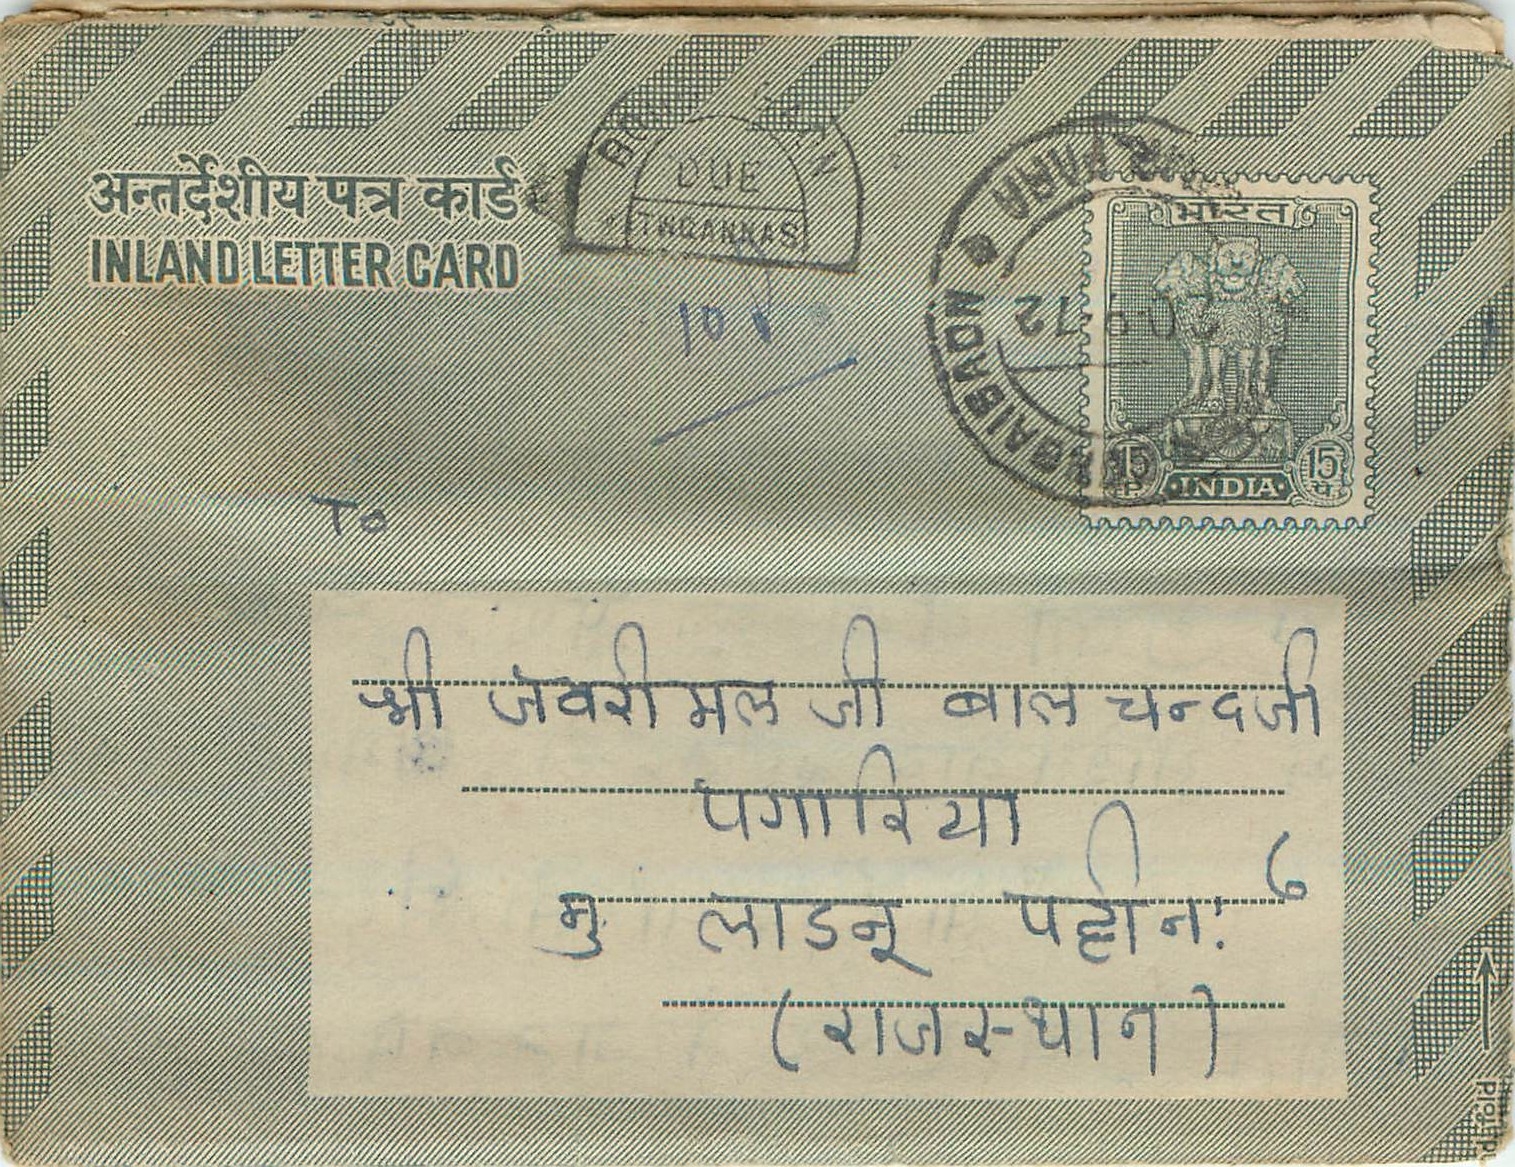 अन्तर्देशीय पत्र कार्ड
INLAND LETTER CARD
DUE
TWO ANNAS
भारत
72
15 15
P प.
INDIA
10
To
श्री जेवरीमल जी बालचन्दजी
पगारिया
मु लाडनू पट्टी न: ७
(राजस्थान)
fold